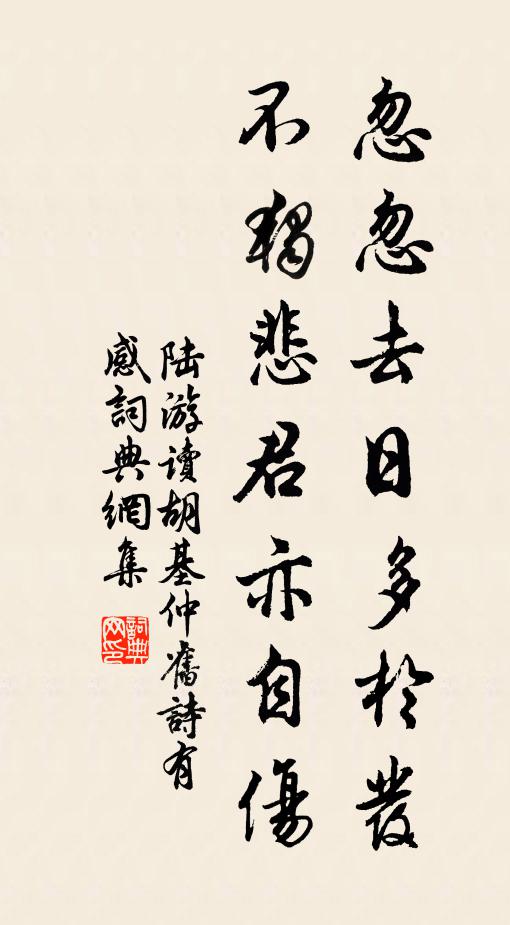 忽忽去日多於發
不獨悲君亦自傷
陸游讀胡基仲舊詩有
感詞典網集
詞典
网印